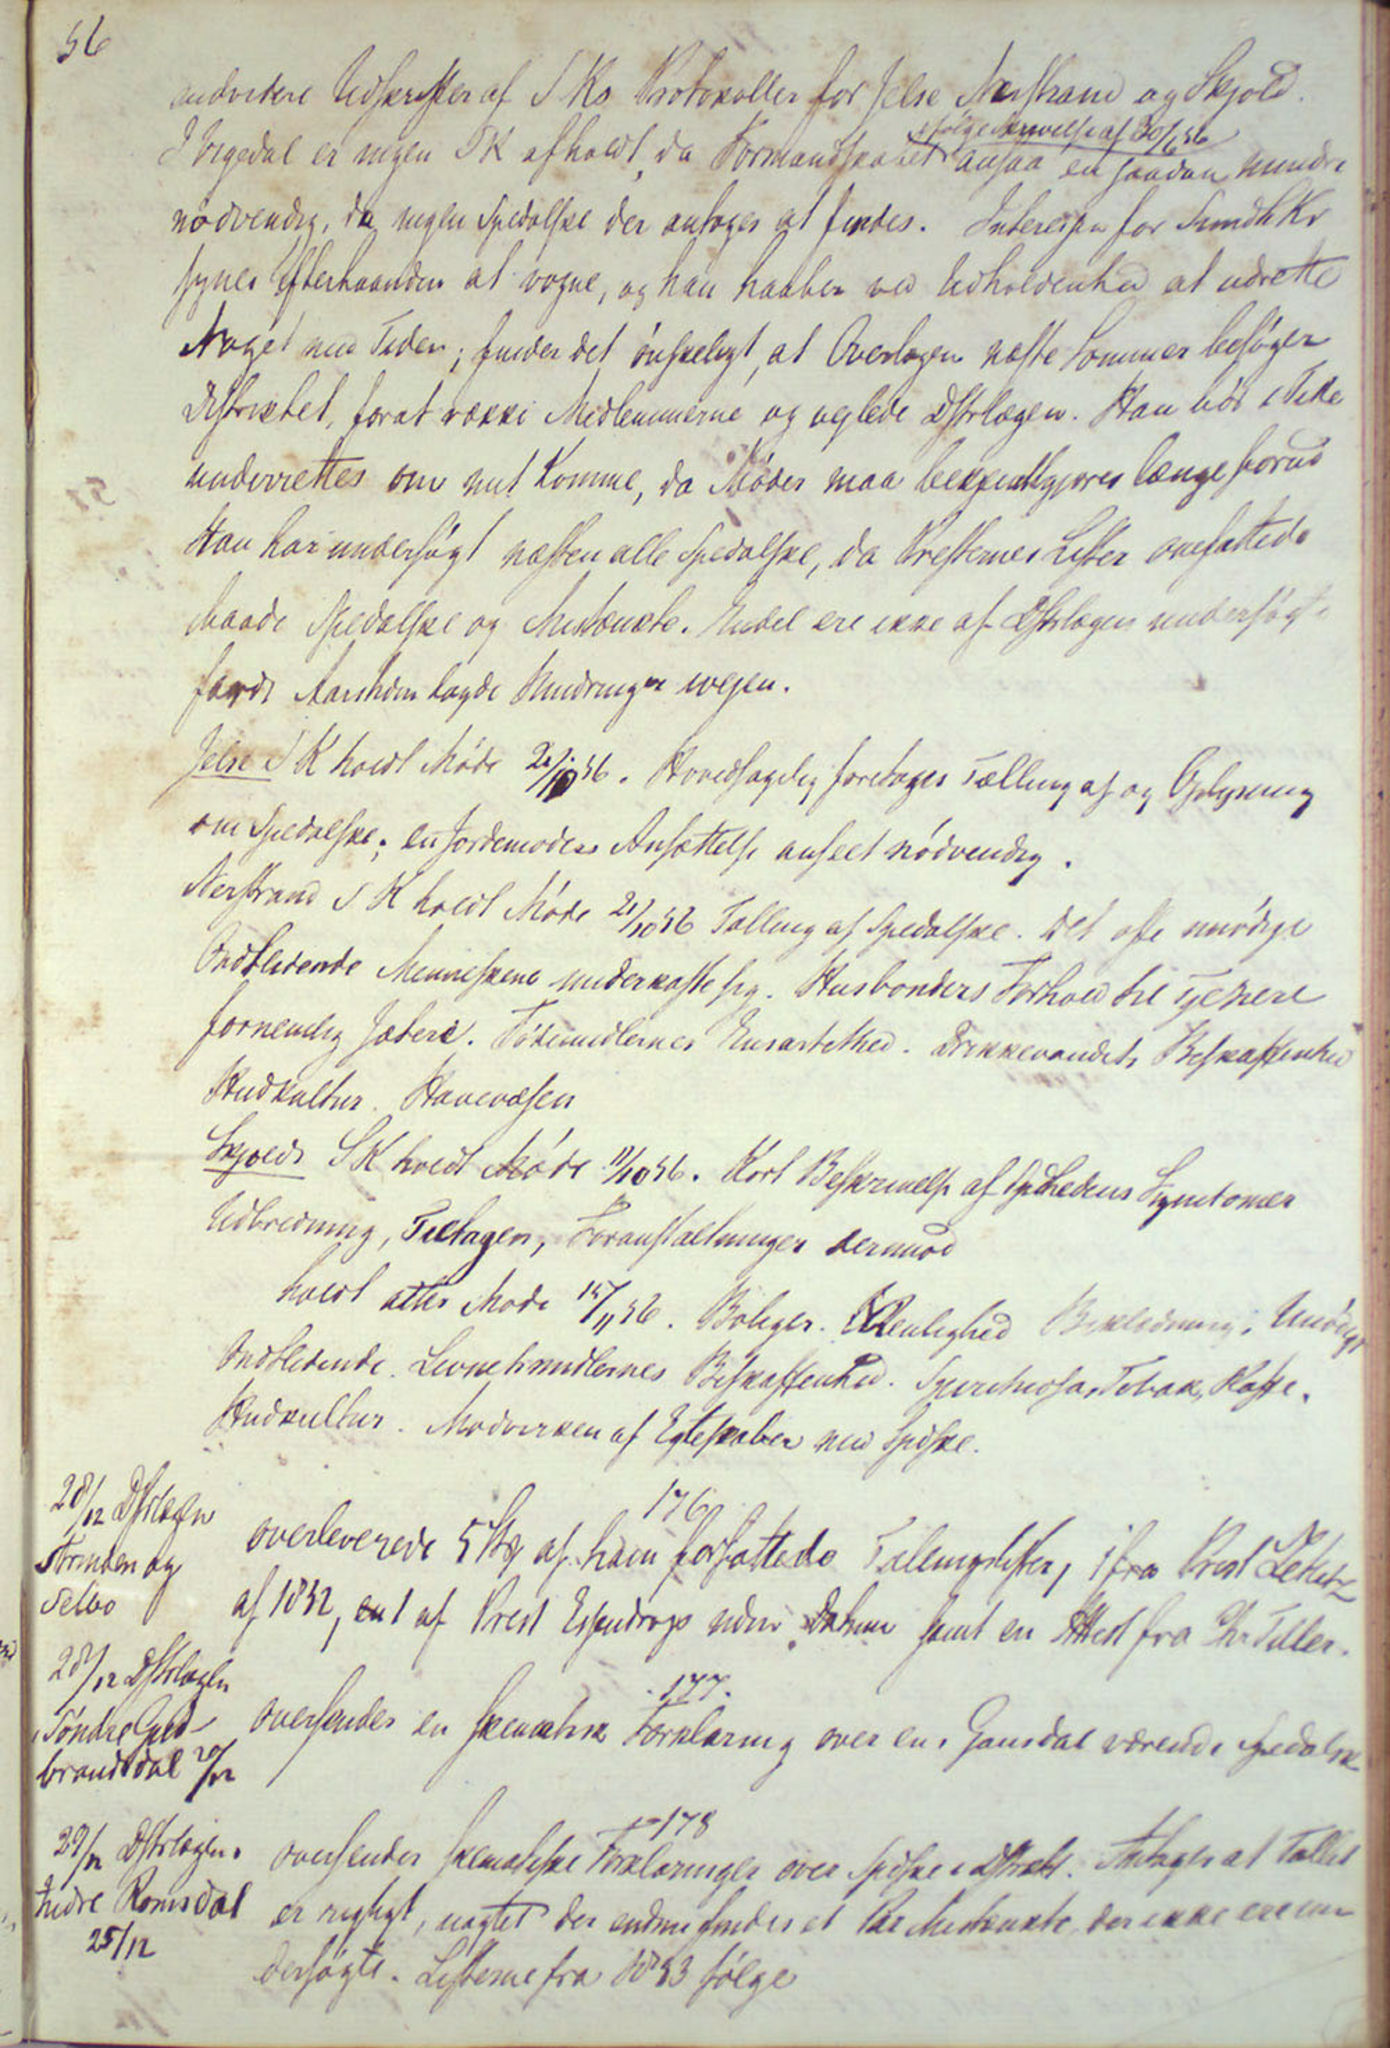 56
endvidere Udskrifter af SKs Protokoller for Jelse Nerstrand og Skjold.
ifølge Skrivelse af 30/6 56
I Vigedal er ingen SK afholdt, da Formandskabet ansaa en saadan mindre
nødvendig, da ingen Spedalske der antages at findes. Interessen for SundhKv
synes efterhaanden at vogne, og han haaber ved Udholdenhed at udrette
Noget med Tiden; finder det ønskeligt, at Overlægen næste Sommer besøger
Distriktet, forat vække Medlemmerne og veilede Dstrlægen. Han bør i Tide
underrettes om mit Komme, da Møder maa bekjendtgjøres længe forud
Han har undersøgt næsten alle Spedalske, da Presternes Lister omfattede
baade Spedalske og Mistænkte. Endel ere ikke af Dstrlægen undersøgte
fordi Aarstiden lagde Hindringer iveien.
Jelse SK holdt Møde 2/10 56. Hovedsagelig foretoges Tælling af og Oplysning
om Spedalske; en Jordemoders Ansættelse anseet nødvendig.
Nerstrand SK holdt Møde 21/10 56 Tælling af Spedalske. Det ofte unødige
Ondtlidende Menneskene underkaste sig. Husbonders Forhold til Tjenere
fornemlig Jætere. Fødemidlernes Ensartethed. Drikkevandets Beskaffenhed
Hudkultur. Havevæsen
Skjolds SK holdt Møde 11/10 56. Kort Beskrivelse af Spdhedens Symtomer
Udbredning, Tiltagen, Foranstaltninger dermod
holdt atter Møde 15/11 56. Boliger. Renlighed Beklædning. Unødigt
Ondtlidende. Levnetsmidlernes Beskaffenhed. Spirituosa, Tobak, Kaffe.
Hudkultur. Modvirken af Egteskaber med Spdske.
176
28/12 Dstrlægen
Strinden og
Selbo
overleverede 5 Stk af ham forfattede Tællingslister, 1 fra Prest
af 1852, 1 af Prest Essendrop uden Datum samt en Attest fra Chr Tiller.
177.
28/12 Dstrlægen
Søndre Gud-
brandsdal 20/12
oversender en skematisk Forklaring over en i Gausdal værende Spedalsk
178
29/12 Dstrlægen
Indre Romsdal
25/12
oversender skematiske Forklaringer over Spdske i Dstriktet. Antager at Tallet
er rigtigt, uagtet der endnu findes et Par Mistænkte, der ikke ere un
dersøgte. Listerne fra 1853 følge